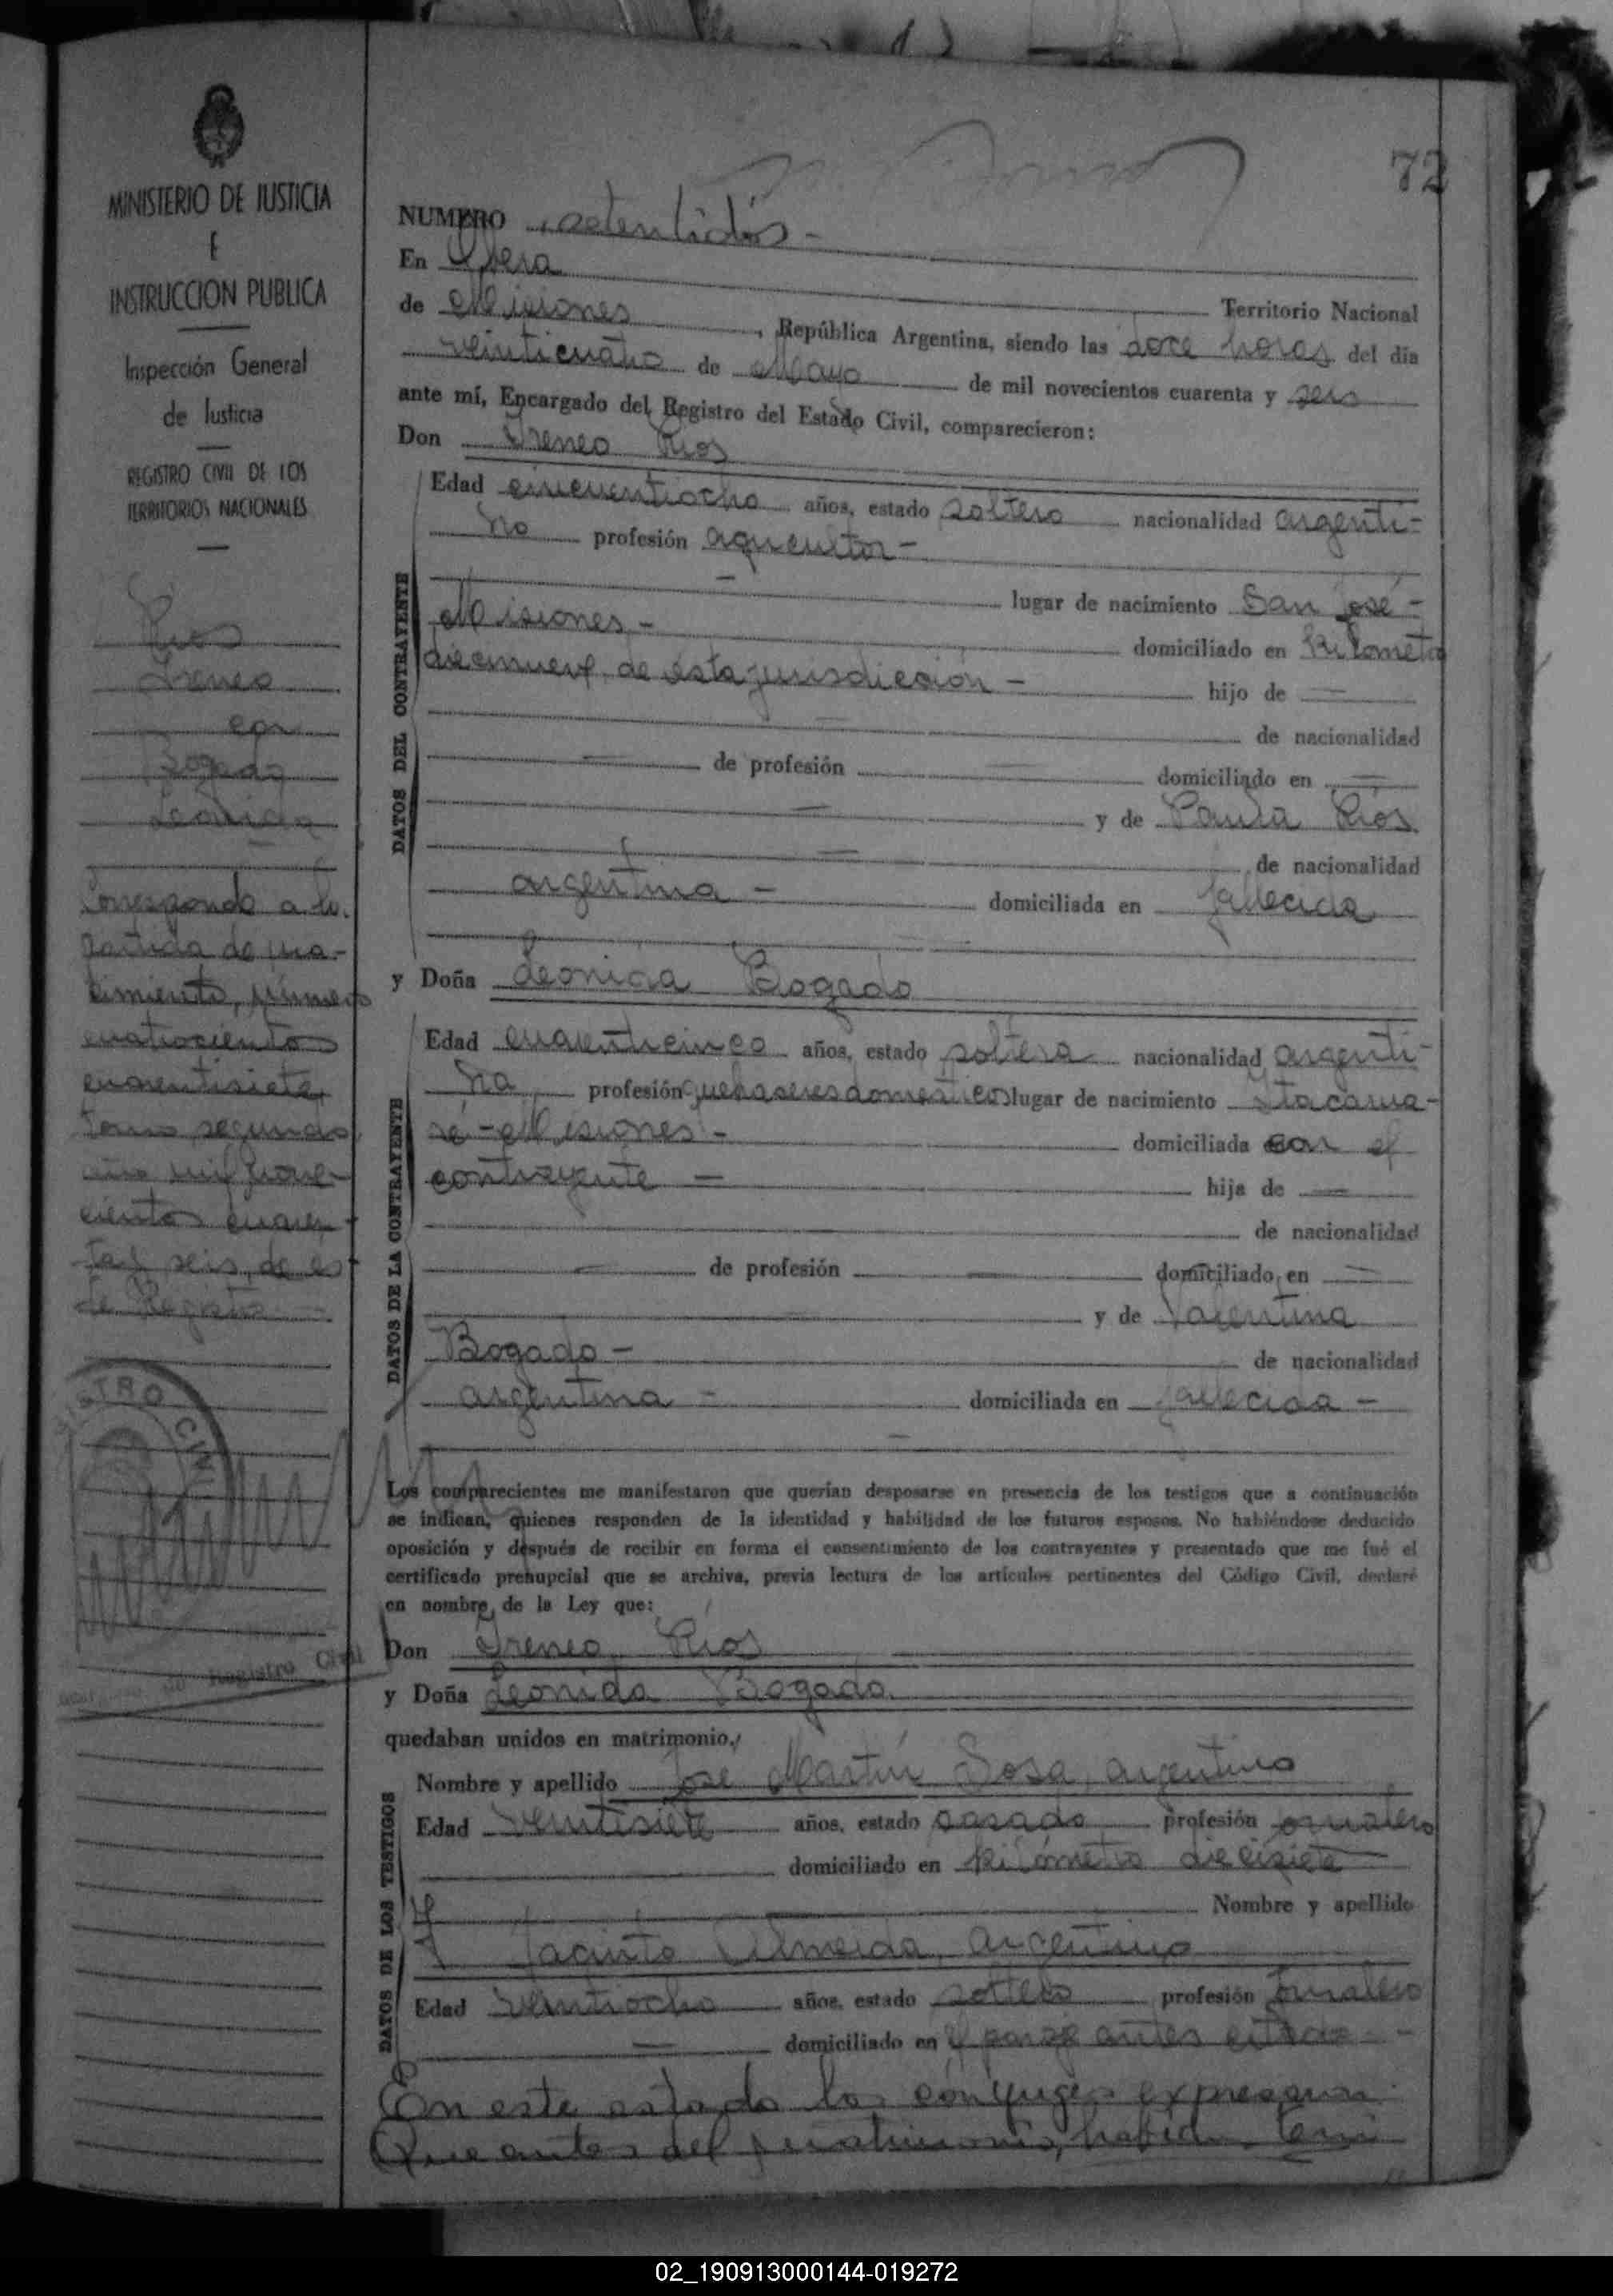 72
MINISTERIO DE JUSTICIA
E
INSTRUCCION PUBLICA
Inspección General
de Justicia
REGISTRO CIVIL DE LOS
TERRITORIOS NACIONALES
Rios
Ireneo
con
Bogado
Leonida
Corresponde a la
partida de na-
cimiento, número
cuatrocientos
cuarentisiete,
tomo segundo,
año mil nove-
cientos cuaren-
ta y seis, de es-
te Registro
REGISTRO CIVIL
Registro Civil
NUMERO setentidós -
En Obera
Territorio Nacional
de Misiones, República Argentina, siendo las doce horas del día
veinticuatro de Mayo de mil novecientos cuarenta y seis
ante mí, Encargado del Registro del Estado Civil, comparecieron:
Don Ireneo Rios
DATOS DEL CONTRAYENTE
Edad cincuentiocho años, estado soltero nacionalidad argenti-
no profesión agricultor -
lugar de nacimiento San José -
Misiones - domiciliado en kilometro
diecinueve de esta jurisdicción - hijo de —
— de nacionalidad
— de profesión — domiciliado en —
— y de Paula Rios
— de nacionalidad
argentina - domiciliada en fallecida
y Doña Leonida Bogado
DATOS DE LA CONTRAYENTE
Edad cuarenticinco años, estado soltera nacionalidad argenti-
na profesión quehaseres domesticos lugar de nacimiento Itacarua-
ré - Misiones - domiciliada con el
contrayente — hija de —
de nacionalidad
— de profesión — domiciliado en —
— y de Valentina
Bogado - de nacionalidad
argentina - domiciliada en fallecida -
Los comparecientes me manifestaron que querían desposarse en presencia de los testigos que a continuación
se indican, quienes responden de la identidad y habilidad de los futuros esposos. No habiéndose deducido
oposición y después de recibir en forma el consentimiento de los contrayentes y presentado que me fué el
certificado prenupcial que se archiva, previa lectura de los artículos pertinentes del Código Civil, declaré
en nombre de la Ley que:
Don Ireneo Rios
y Doña Leonida Bogado
quedaban unidos en matrimonio.
DATOS DE LOS TESTIGOS
Nombre y apellido José Martín Sosa, argentino
Edad veintisiete años, estado casado profesión jornalero
domiciliado en kilómetro diecisiete
Y — Nombre y apellido
Jacinto Almeida, argentino
Edad veintiocho años, estado soltero profesión jornalero
— domiciliado en el paraje antes citado -
En este estado los cónyuges expresaron:
Que antes del matrimonio, habían
02_190913000144-019272